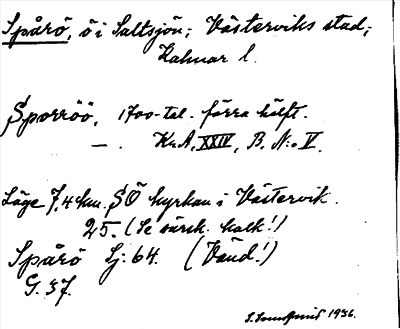 Spårö, ö i Saltsjön; Västerviks stad;
Kalmar l.
Sporröö, 1700-tal. förra hälft.
— . Kr.A. XXIV, B. N:o V.
Läge 7,4 km. SÖ kyrkan i Västervik.
25. (Se särsk. kalk!)
Spårö Sj: 64. (Vänd!)
G. 37.
1936.